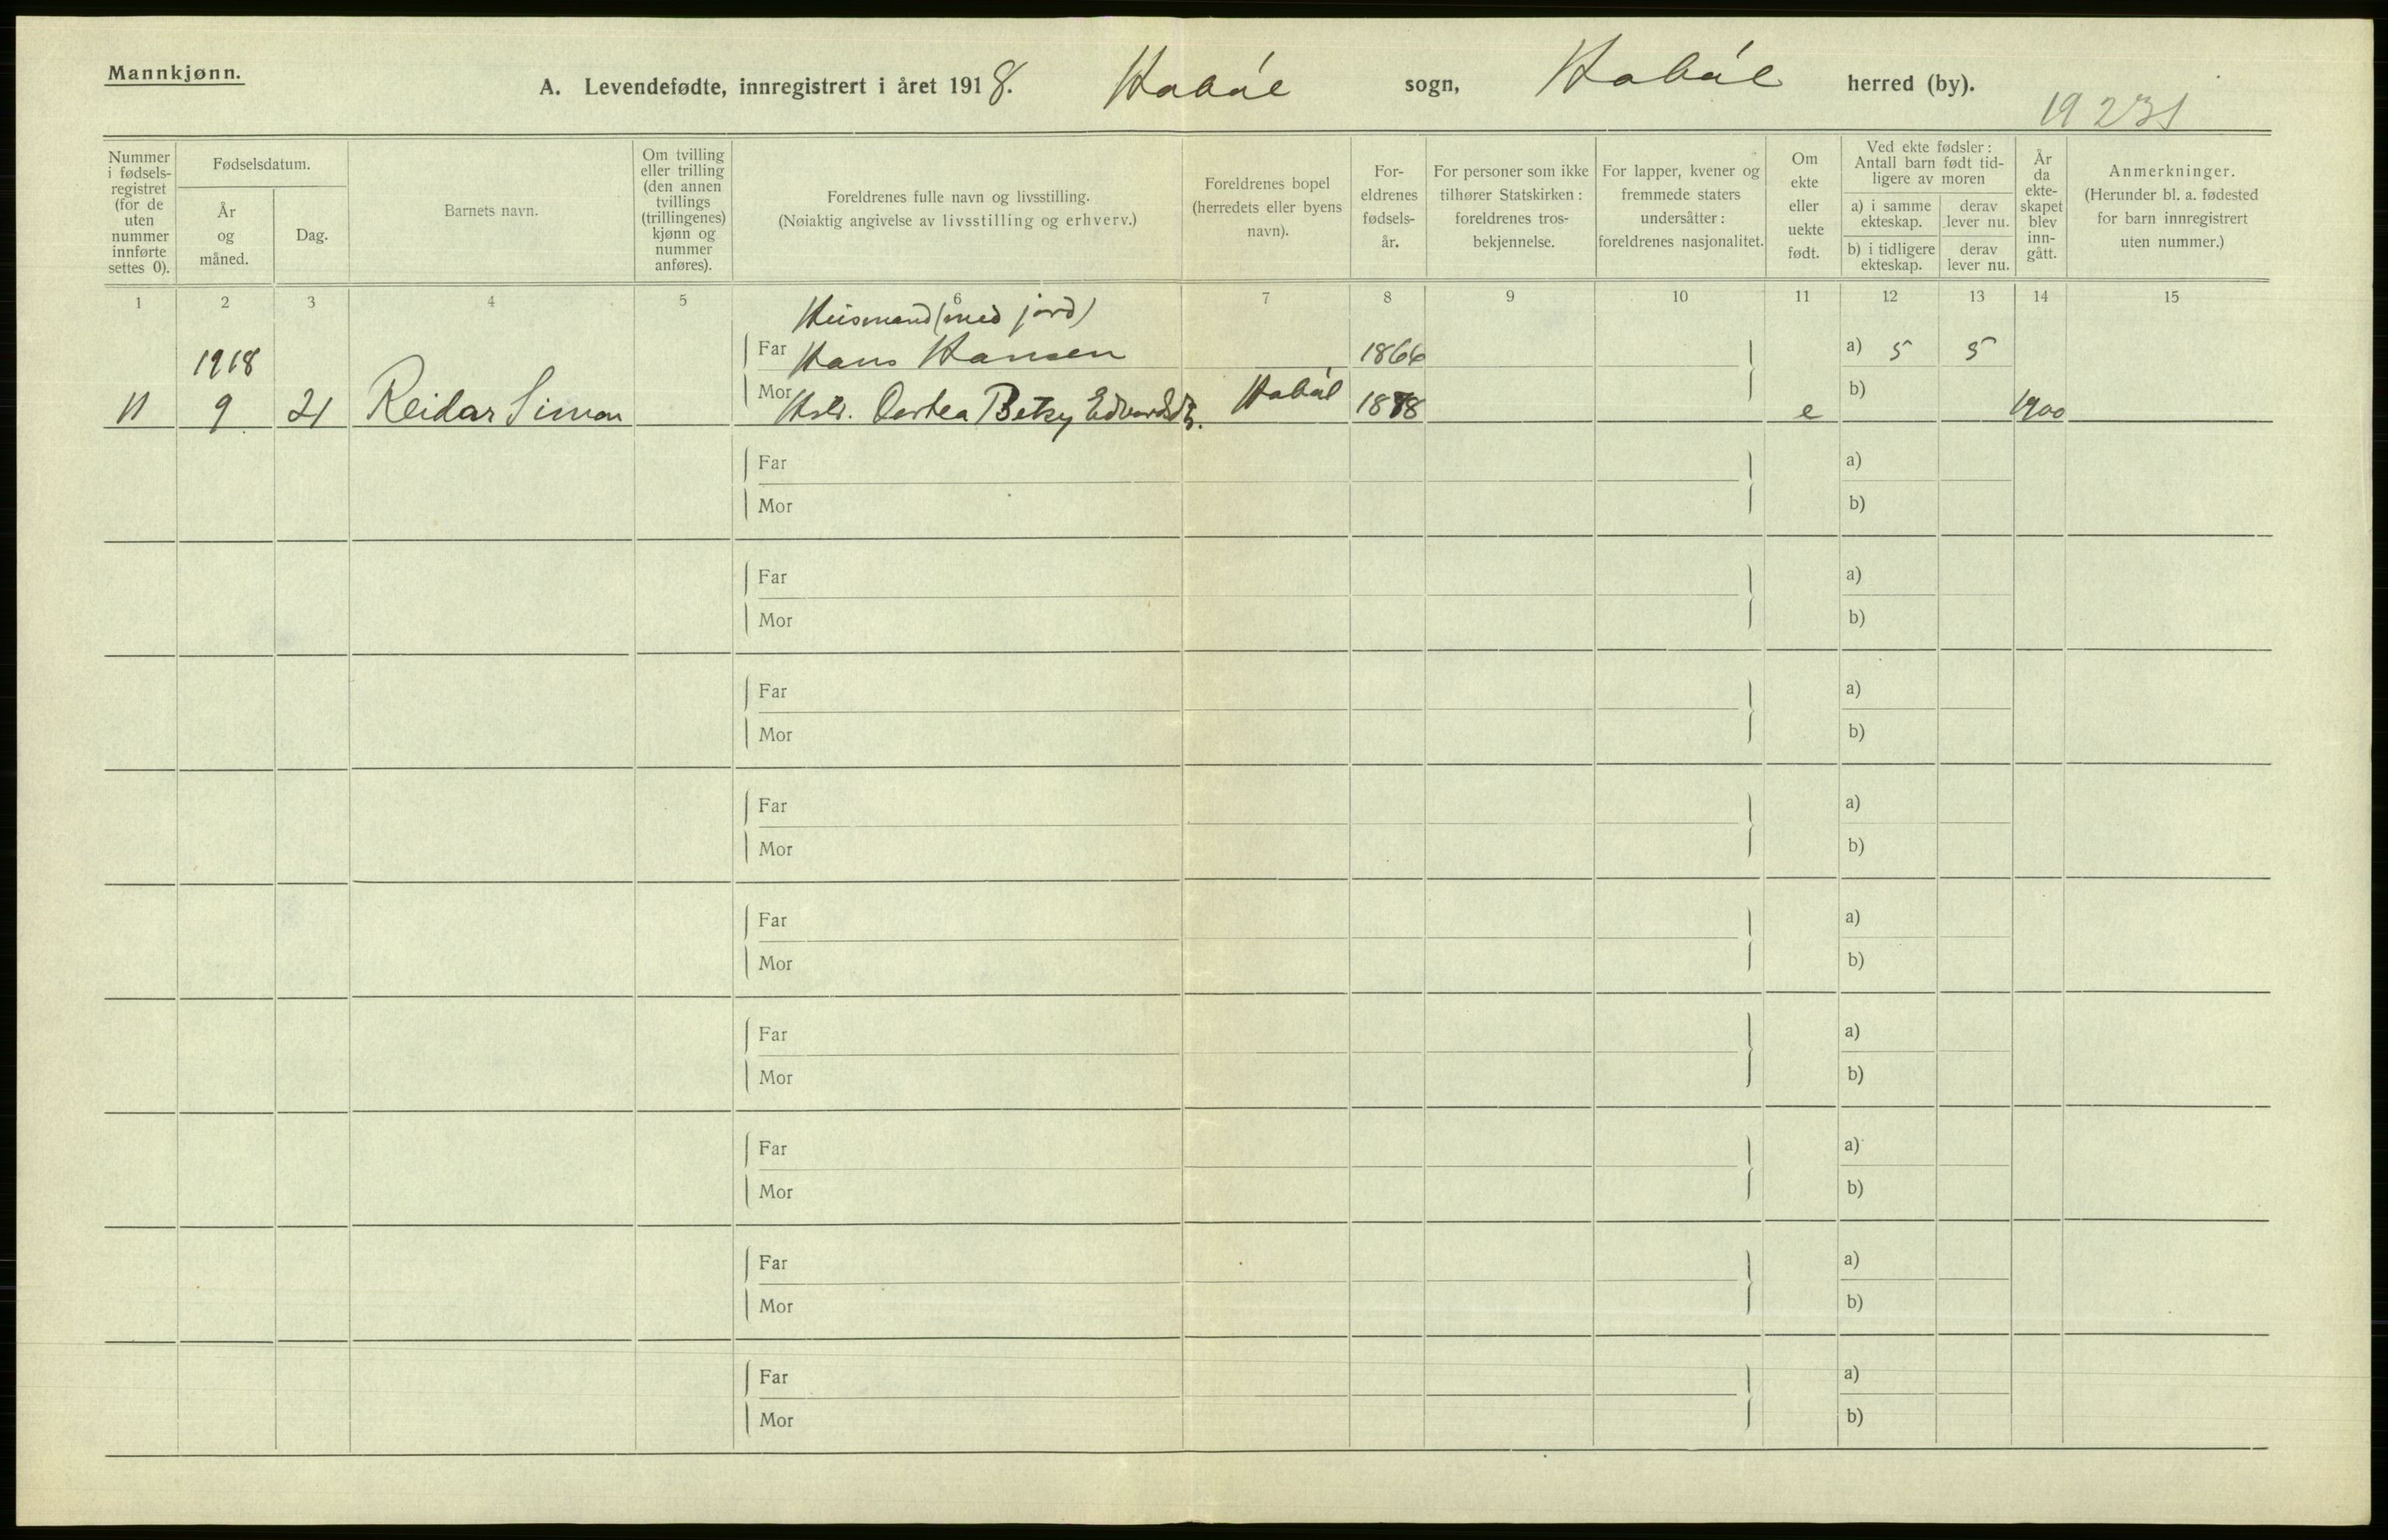 Mannkjønn.
A. Levendefødte, innregistrert i året 1918. Habøl sogn, Habøl herred (by).
19231
Nummer i fødsels-registret (for de uten nummer innførte settes 0).
Fødselsdatum.
År og måned.
Dag.
Barnets navn.
Om tvilling eller trilling (den annen tvillings (trillingenes) kjønn og nummer anføres).
Foreldrenes fulle navn og livsstilling.
(Nøiaktig angivelse av livsstilling og erhverv.)
Foreldrenes bopel (herredets eller byens navn).
For-eldrenes fødsels-år.
For personer som ikke tilhører Statskirken: foreldrenes tros-bekjennelse.
For lapper, kvener og fremmede staters undersåtter: foreldrenes nasjonalitet.
Om ekte eller uekte født.
Ved ekte fødsler: Antall barn født tid-ligere av moren
a) i samme ekteskap.
derav lever nu.
b) i tidligere ekteskap.
derav lever nu.
År da ekte-skapet blev inn-gått.
Anmerkninger.
(Herunder bl. a. fødested for barn innregistrert uten nummer.)
1 2 3 4 5 6 7 8 9 10 11 12 13 14 15
Husmand (med jord)
1918 Far Hans Hansen 1866 a) 5 5
11 9 21 Reidar Simon Mor Hstr. Dortea Betsy Edvardsdt. Habøl 1878 e b) 1900
Far a)
Mor b)
Far a)
Mor b)
Far a)
Mor b)
Far a)
Mor b)
Far a)
Mor b)
Far a)
Mor b)
Far a)
Mor b)
Far a)
Mor b)
Far a)
Mor b)